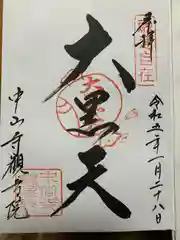 奉拝
令和五年一月二十八日
大黒天
中山寺観音院